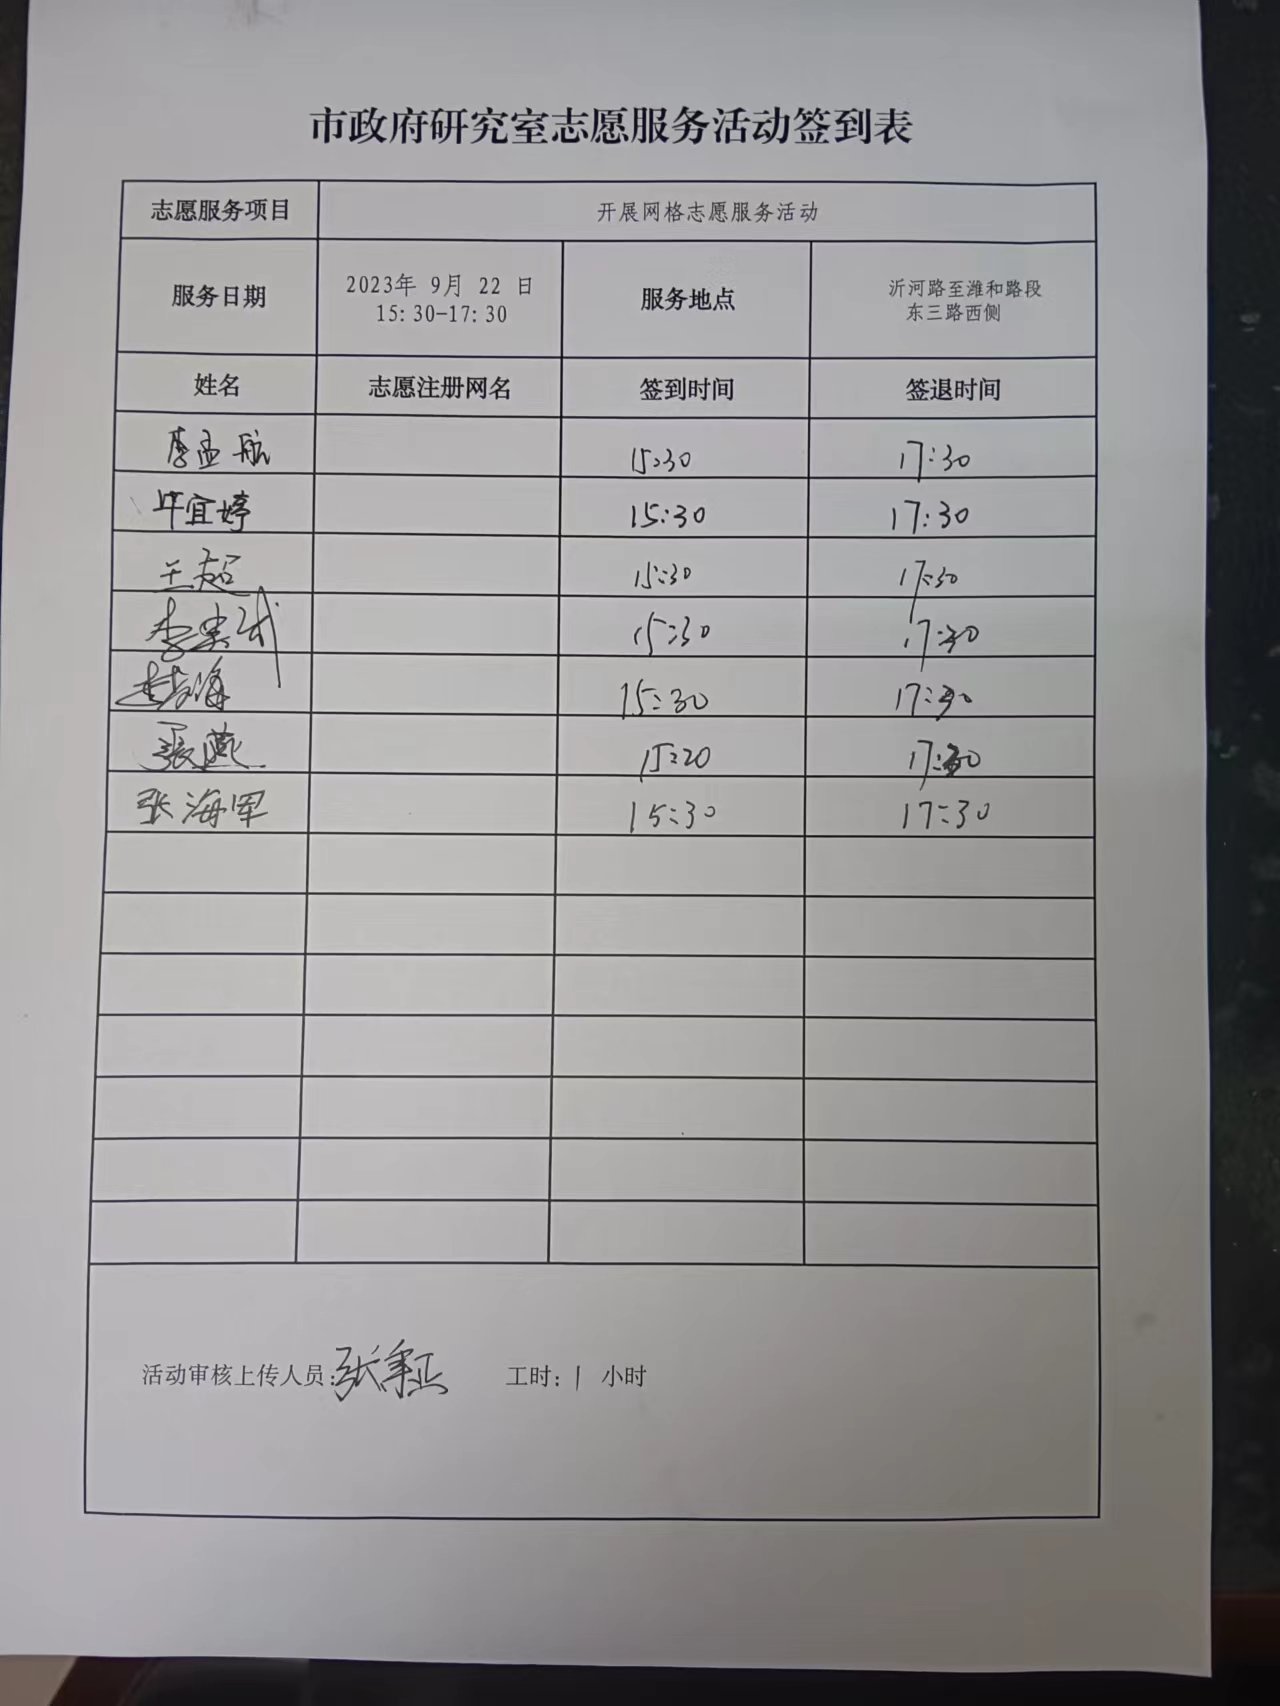 市政府研究室志愿服务活动签到表
志愿服务项目 开展网格志愿服务活动
服务日期 2023年 9月 22 日 15:30-17:30 服务地点 沂河路至潍和路段东三路西侧
姓名 志愿注册网名 签到时间 签退时间
李孟航 15:30 17:30
毕宜婷 15:30 17:30
王超 15:30 17:30
李 15:30 17:30
15:30 17:30
張燕 15:20 17:30
张海军 15:30 17:30
活动审核上传人员: 张 工时: 1 小时